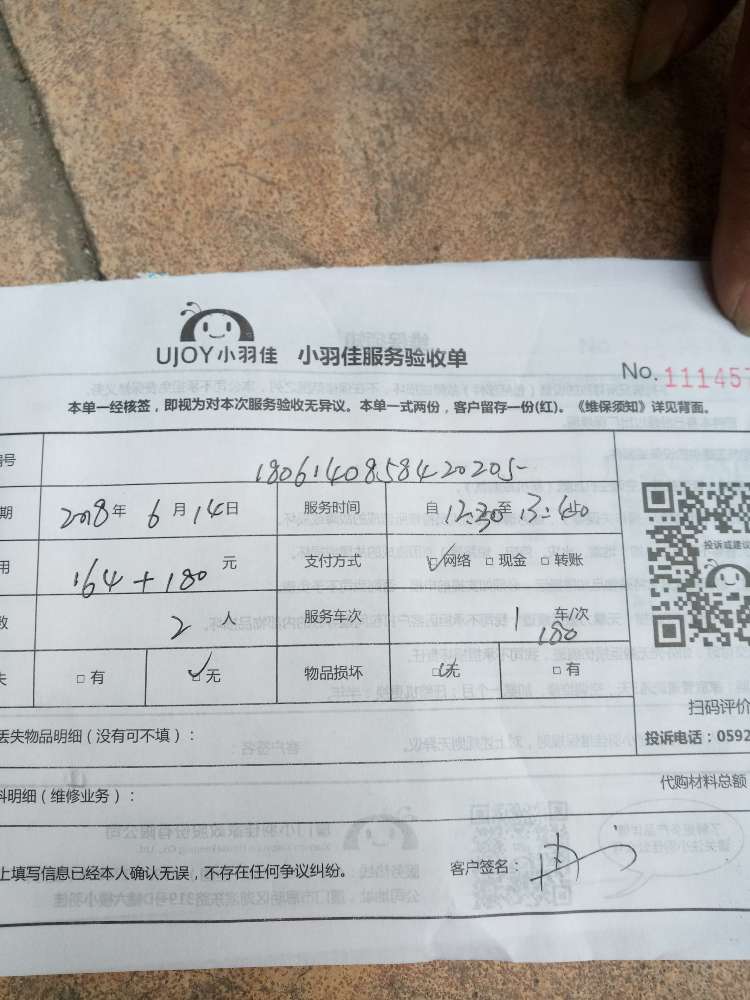 UJOY小羽佳 小羽佳服务验收单
No. 111457
本单一经核签，即视为对本次服务验收无异议。本单一式两份，客户留存一份(红)。《维保须知》详见背面。
编号 1806140858420205
期 2018年 6月14日 服务时间 自12:30至13:40
用 164+180 元 支付方式 ☑网络 □现金 □转账
数 2 人 服务车次 1 车/次
180
失 □有 ☑无 物品损坏 ☑无 □有
投诉或建议
扫码评价
丢失物品明细（没有可不填）： 投诉电话：0592
料明细（维修业务）： 代购材料总额
上填写信息已经本人确认无误，不存在任何争议纠纷。 客户签名：